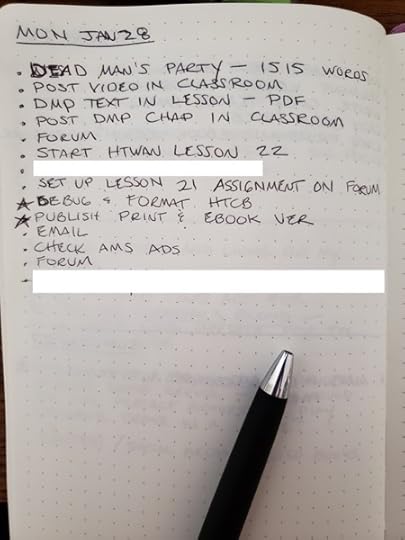 MON JAN 28
• DEAD MAN'S PARTY — 1515 WORDS
• POST VIDEO IN CLASSROOM
• DMP TEXT IN LESSON - PDF
• POST DMP CHAP IN CLASSROOM
• FORUM
• START HTWAN LESSON 22
•
• SET UP LESSON 21 ASSIGNMENT ON FORUM
★ DEBUG & FORMAT HTCB
★ PUBLISH PRINT & EBOOK VER
• EMAIL
• CHECK AMS ADS
• FORUM
•